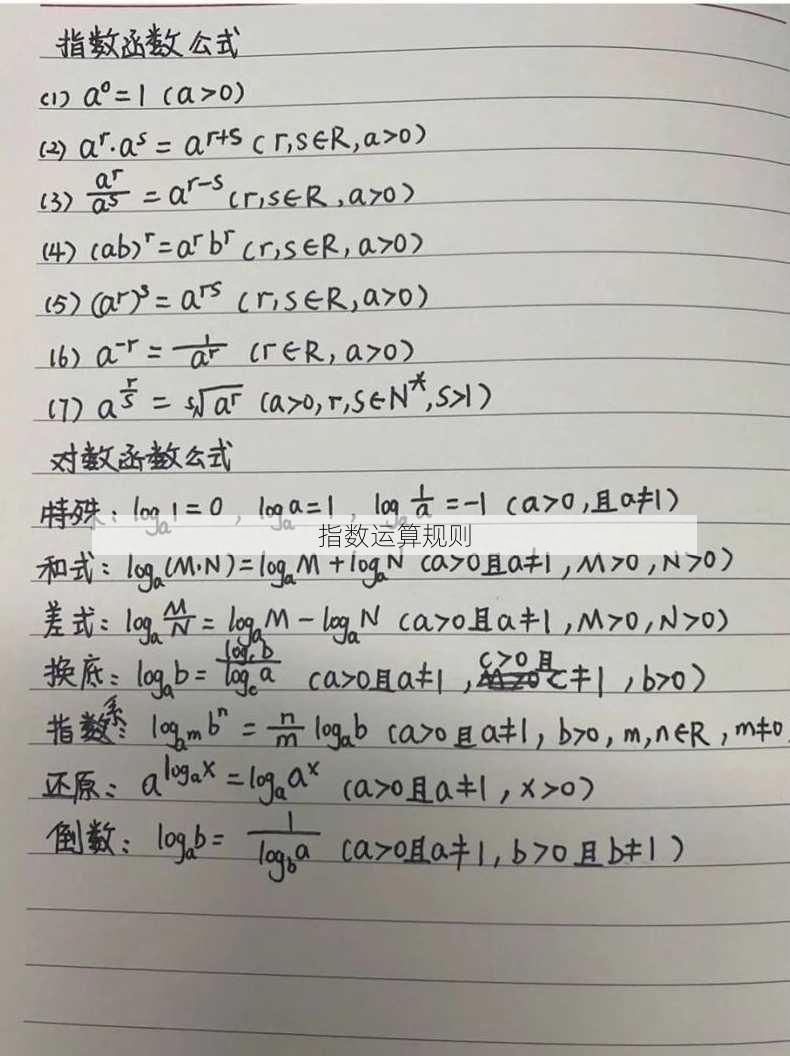 指数函数公式
(1) a⁰=1 (a>0)
(2) aʳ·aˢ = aʳ⁺ˢ (r,s∈R,a>0)
(3) aʳ/aˢ = aʳ⁻ˢ (r,s∈R,a>0)
(4) (ab)ʳ=aʳbʳ (r,s∈R,a>0)
(5) (aʳ)ˢ = aʳˢ (r,s∈R,a>0)
(6) a⁻ʳ = 1/aʳ (r∈R, a>0)
(7) a^(r/s) = ˢ√aʳ (a>0,r,s∈N*,s>1)
对数函数公式
特殊: logₐ1=0, logₐa=1, logₐ1/a=-1 (a>0,且a≠1)
指数运算规则
和式: logₐ(M·N)=logₐM+logₐN (a>0且a≠1,M>0,N>0)
差式: logₐM/N = logₐM-logₐN (a>0且a≠1,M>0,N>0)
换底: logₐb = log_c b/log_c a (a>0且a≠1,c>0且c≠1,b>0)
指数系: log_aᵐ bⁿ = n/m logₐb (a>0且a≠1,b>0,m,n∈R,m≠0
还原: a^(logₐx) = logₐaˣ (a>0且a≠1,x>0)
倒数: logₐb = 1/log_b a (a>0且a≠1,b>0且b≠1)